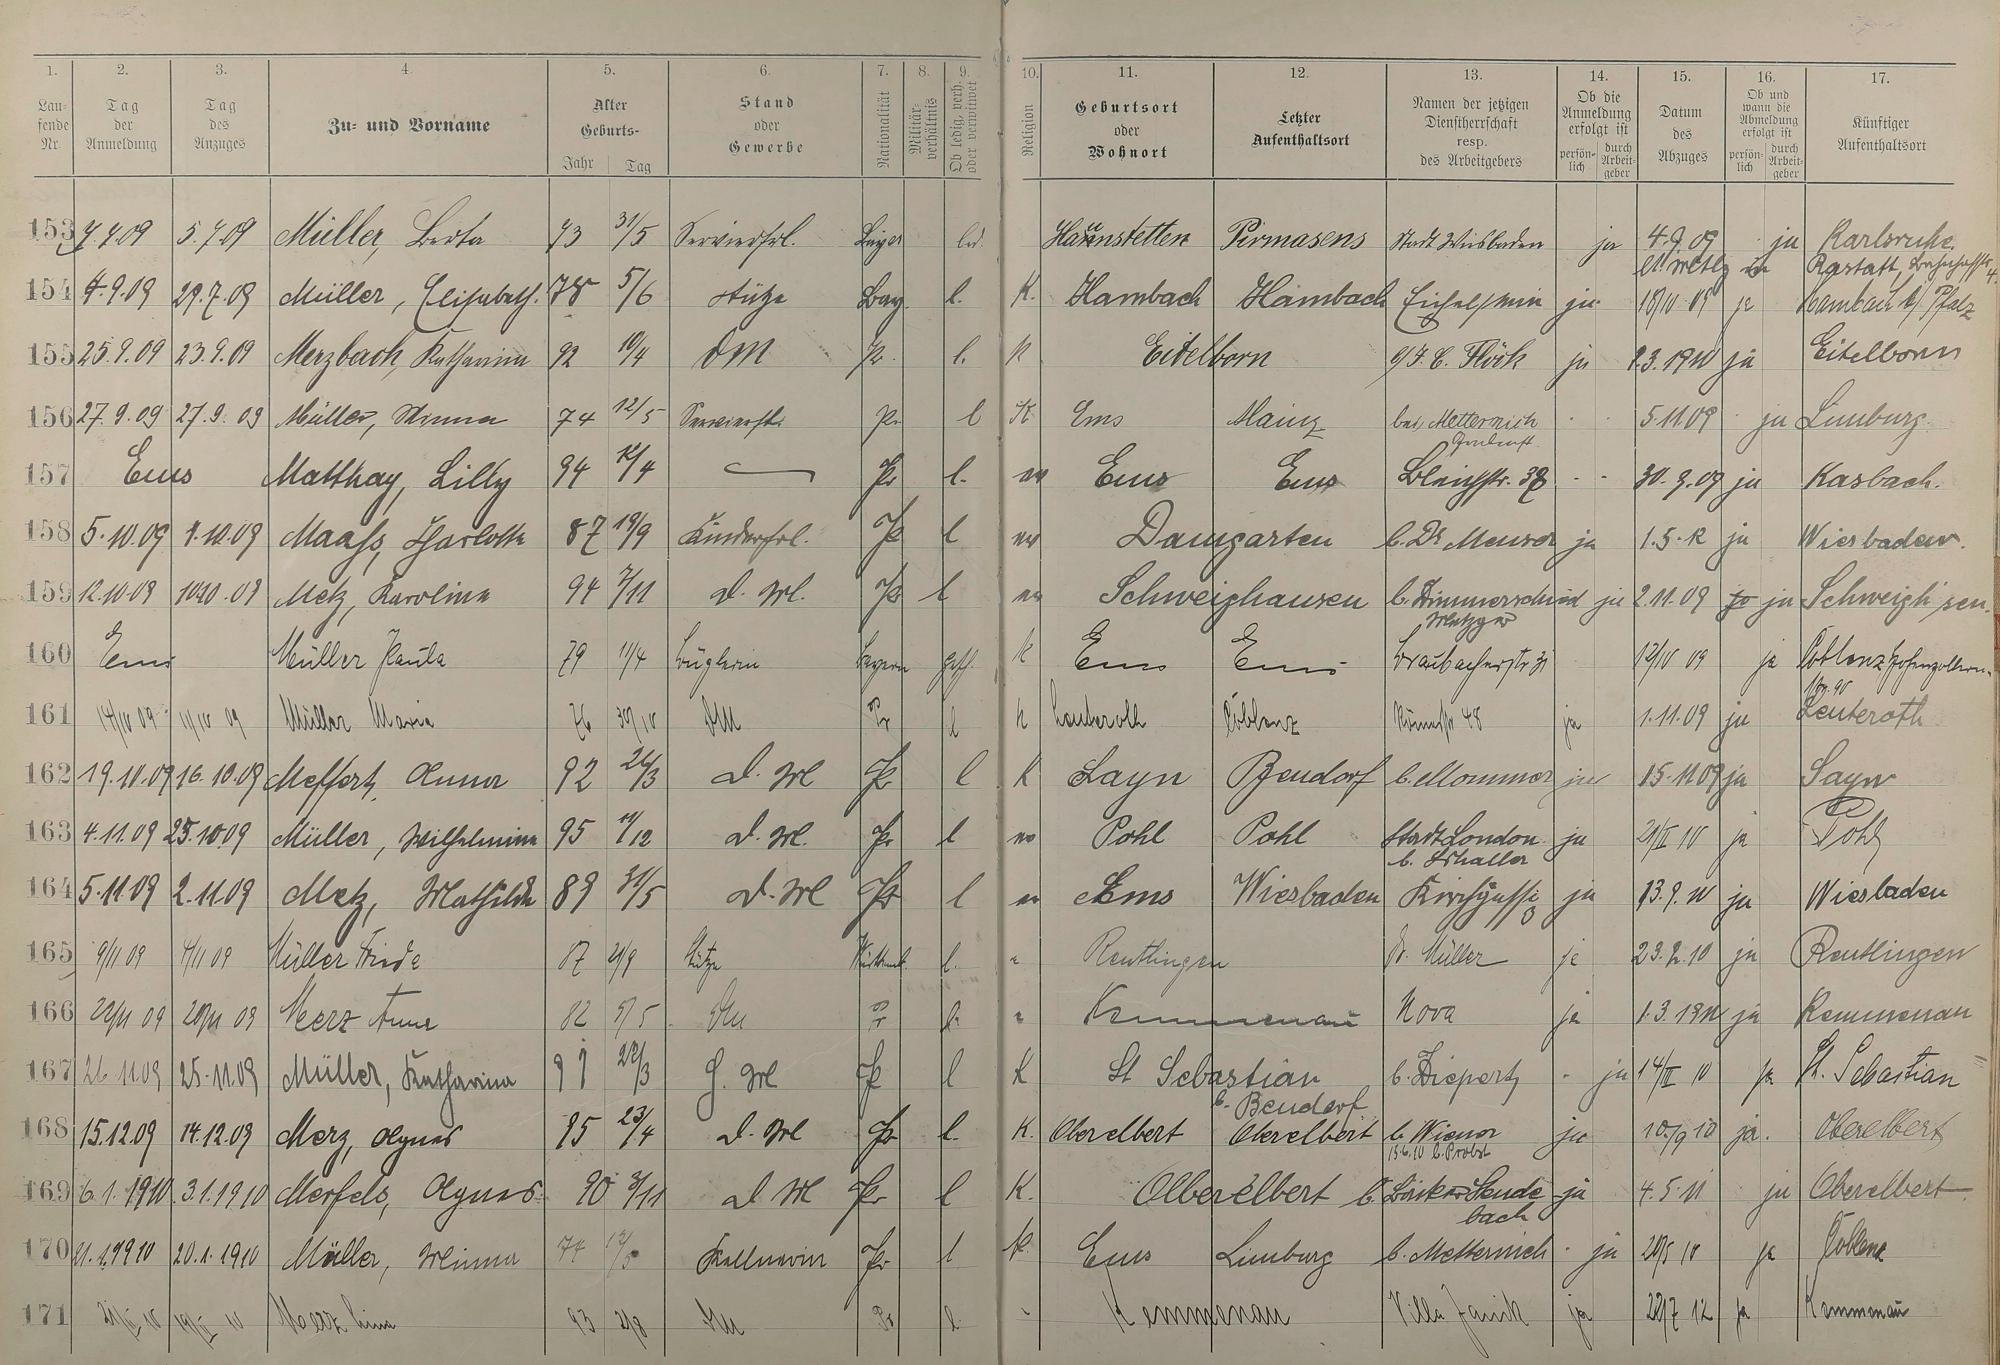 1. 2. 3. 4. 5. 6. 7. 8. 9. 10. 11. 12. 13. 14. 15. 16. 17.
Lau-fende Nr. Tag der Anmeldung Tag des Anzuges Zu- und Vorname Alter Geburts- Jahr Tag Stand oder Gewerbe Nationalität Militär-verhältnis Ob ledig, verh. oder verwitwet Religion Geburtsort oder Wohnort Letzter Aufenthaltsort Namen der jetzigen Dienstherrschaft resp. des Arbeitgebers Ob die Anmeldung erfolgt ist persön-lich durch Arbeit-geber Datum des Abzuges Ob und wann die Abmeldung erfolgt ist persön-lich durch Arbeit-geber Künftiger Aufenthaltsort
153 7.7.09 5.7.09 Müller, Berta 73 31/5 Servierfrl. Bayer led. Haunstetten Pirmasens Stadt Wiesbaden ja 4.9.09 ja Karlsruhe
Rastatt, Bahnhofstr. 4.
154 4.9.09 29.7.09 Müller, Elisabeth. 78 5/6 Stütze Bay. l. K. Hambach Hambach ja 18/10 09 ja Hambach Pfalz
155 25.9.09 23.9.09 Merzbach, Katharina 92 10/4 DM Pr. l. K Eitelborn Flöck ja 1.3.1910 ja Eitelborn
156 27.9.09 27.9.09 Müller, Minna 74 12/5 Servierfrl. Pr l K Ems Mainz bei Metternich 5.11.09 ja Limburg
157 Ems Matthay, Lilly 94 /4 Pr l. ev Ems Ems Bleichstr. 30.9.09 ja Kasbach.
158 5.10.09 1.10.09 Maaß, Charlotte 87 19/9 Kinderfrl. Pr l ev Damgarten b. Dr Meuser ja 1.5. ja Wiesbaden.
159 12.10.09 10.10.09 Metz, Karolina 94 7/11 D. M. Pr l ev Schweighausen b. Dimmerscheid ja 2.11.09 ja Schweigh'sen.
Metzger
160 Ems Müller Paula 79 11/4 Büglerin Bayern gesch. K Ems Ems Braubacherstr 31 12/10 09 ja Coblenz Hohenzollern-
161 14/10 09 11/10 09 Müller Maria 76 30/10 DM Pr l K Leuteroth Coblenz Römerstr 48 ja 1.11.09 ja Leuteroth
162 19.10.09 16.10.09 Meffert, Anna 92 26/3 D. M Pr l K Sayn Bendorf b. Mommer ja 15.11.09 ja Sayn
163 4.11.09 25.10.09 Müller, Wilhelmine 95 /12 D. M. Pr l ev Pohl Pohl Stadt London ja 21/II 10 ja Pohl
b. Schaller
164 5.11.09 2.11.09 Metz, Mathilde 89 31/5 D. M Pr l ev Ems Wiesbaden Kirchgasse ja 13.9.10 ja Wiesbaden
165 9/11 09 4/11 09 Müller Frieda 87 21/9 Stütze Württemb. l. Reutlingen Dr. Müller ja 23.2.10 ja Reutlingen
166 22/11 09 20/11 09 Merz Anna 82 5/5 DM Pr l. Kemmenau Nova ja 1.3.1910 ja Kemmenau
167 26.11.09 25.11.09 Müller, Katharina 91 22/3 D. M Pr l K St Sebastian b. Diepertz - ja 14/III 10 ja St. Sebastian
b. Bendorf
168 15.12.09 14.12.09 Merz, Agnes 95 23/4 D. M Pr l. K. Oberelbert Oberelbert b. Wiener ja 10/9 10 ja. Oberelbert
15.6.10 b. Probst
169 6.1.1910 3.1.1910 Merfels, Agnes 90 3/11 D M Pr l K. Oberelbert b. Bäcker Leude ja 4.5.11 ja Oberelbert
bach
170 21.1.1910 20.1.1910 Müller, Minna 74 12/5 Kellnerin Pr l K. Ems Limburg b. Metternich - ja 20/5 10 ja Coblenz
171 21/II 10 19/II 10 Merz Lina 93 21/8 DM Pr l. Kemmenau Villa Janik ja 20/7 12 ja Kemmenau